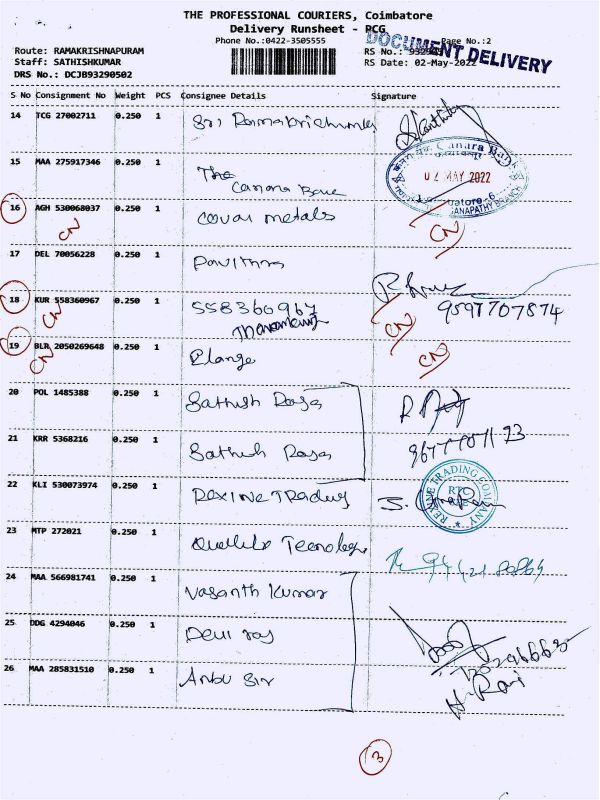 THE PROFESSIONAL COURIERS, Coimbatore
Delivery Runsheet - PCG
Phone No.:0422-3505555 Page No.:2
DOCUMENT DELIVERY
Route: RAMAKRISHNAPURAM RS No.:
Staff: SATHISHKUMAR RS Date: 02-May-2022
DRS No.: DCJB93290502
S No Consignment No Weight PCS Consignee Details Signature
14 TCG 27002711 0.250 1 Sri
15 MAA 275917346 0.250 1 The
Canara Bank
Canara Bank
02 MAY 2022
GANAPATHY BRANCH
16 AGH 530068037 0.250 1 Covai metals
CN CN
17 DEL 70056228 0.250 1 Pavithra
18 KUR 558360967 0.250 1 558360967
CN CN 9597707874
19 BLR 2050269648 0.250 1 Elange
CN CN
20 POL 1485388 0.250 1 Sathish Raja
21 KRR 5368216 0.250 1 Sathish Raja
22 KLI 530073974 0.250 1 Rexine Trading
TRADING COMPANY
RTC
23 MTP 272021 0.250 1
24 MAA 566981741 0.250 1 Vasanth Kumar
25 DDG 4294046 0.250 1 Devi raj
26 MAA 285831510 0.250 1 Anbu Sir
3